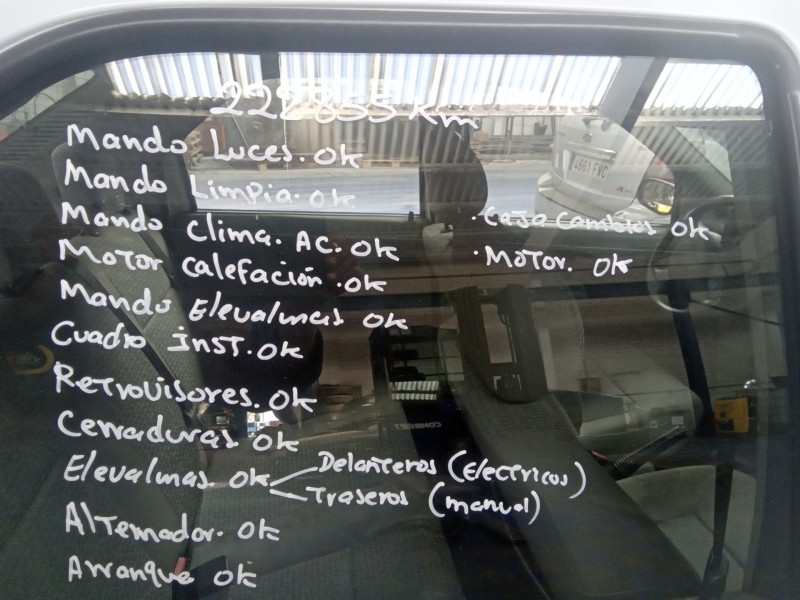 222855 Km
Mando Luces. OK
Mando Limpia. OK
Mando Clima. AC. OK
Motor Calefación. OK
Mando Elevalunas OK
Cuadro inst. OK
Retrovisores. OK
Cerraduras. OK
Elevalunas. OK
Delanteros (Electricos)
Traseros (manual)
Alternador. OK
Arranque OK
· Caja Cambios OK
· Motor. OK
4661 FVC